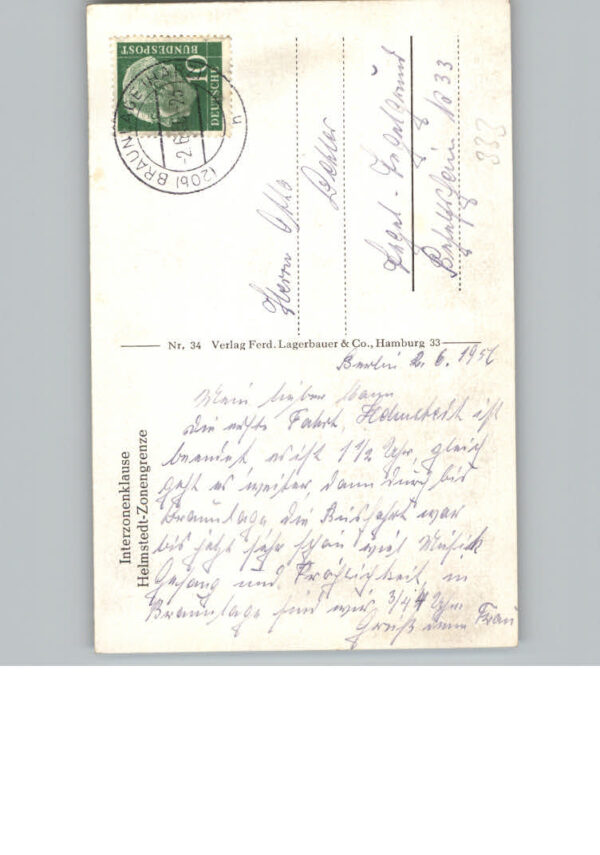 DEUTSCHE
BUNDESPOST
10
(20b) BRAUNLAGE
-2.6.
Herrn Otto
Tegel -
No 33
333
Nr. 34 Verlag Ferd. Lagerbauer & Co., Hamburg 33
Interzonenklause
Helmstedt-Zonengrenze
Berlin 2.6.1956
Mein lieber Mann
die erste Fahrt, Helmstedt ist
beendet, es ist 1 1/2 Uhr, gleich
geht es weiter, dann durch bis
Braunlage die Busfahrt war
bis jetzt sehr schön viel Musik
Gesang und Fröhlichkeit, in
Braunlage sind wir 3/4 4 Uhr
Gruß deine Frau